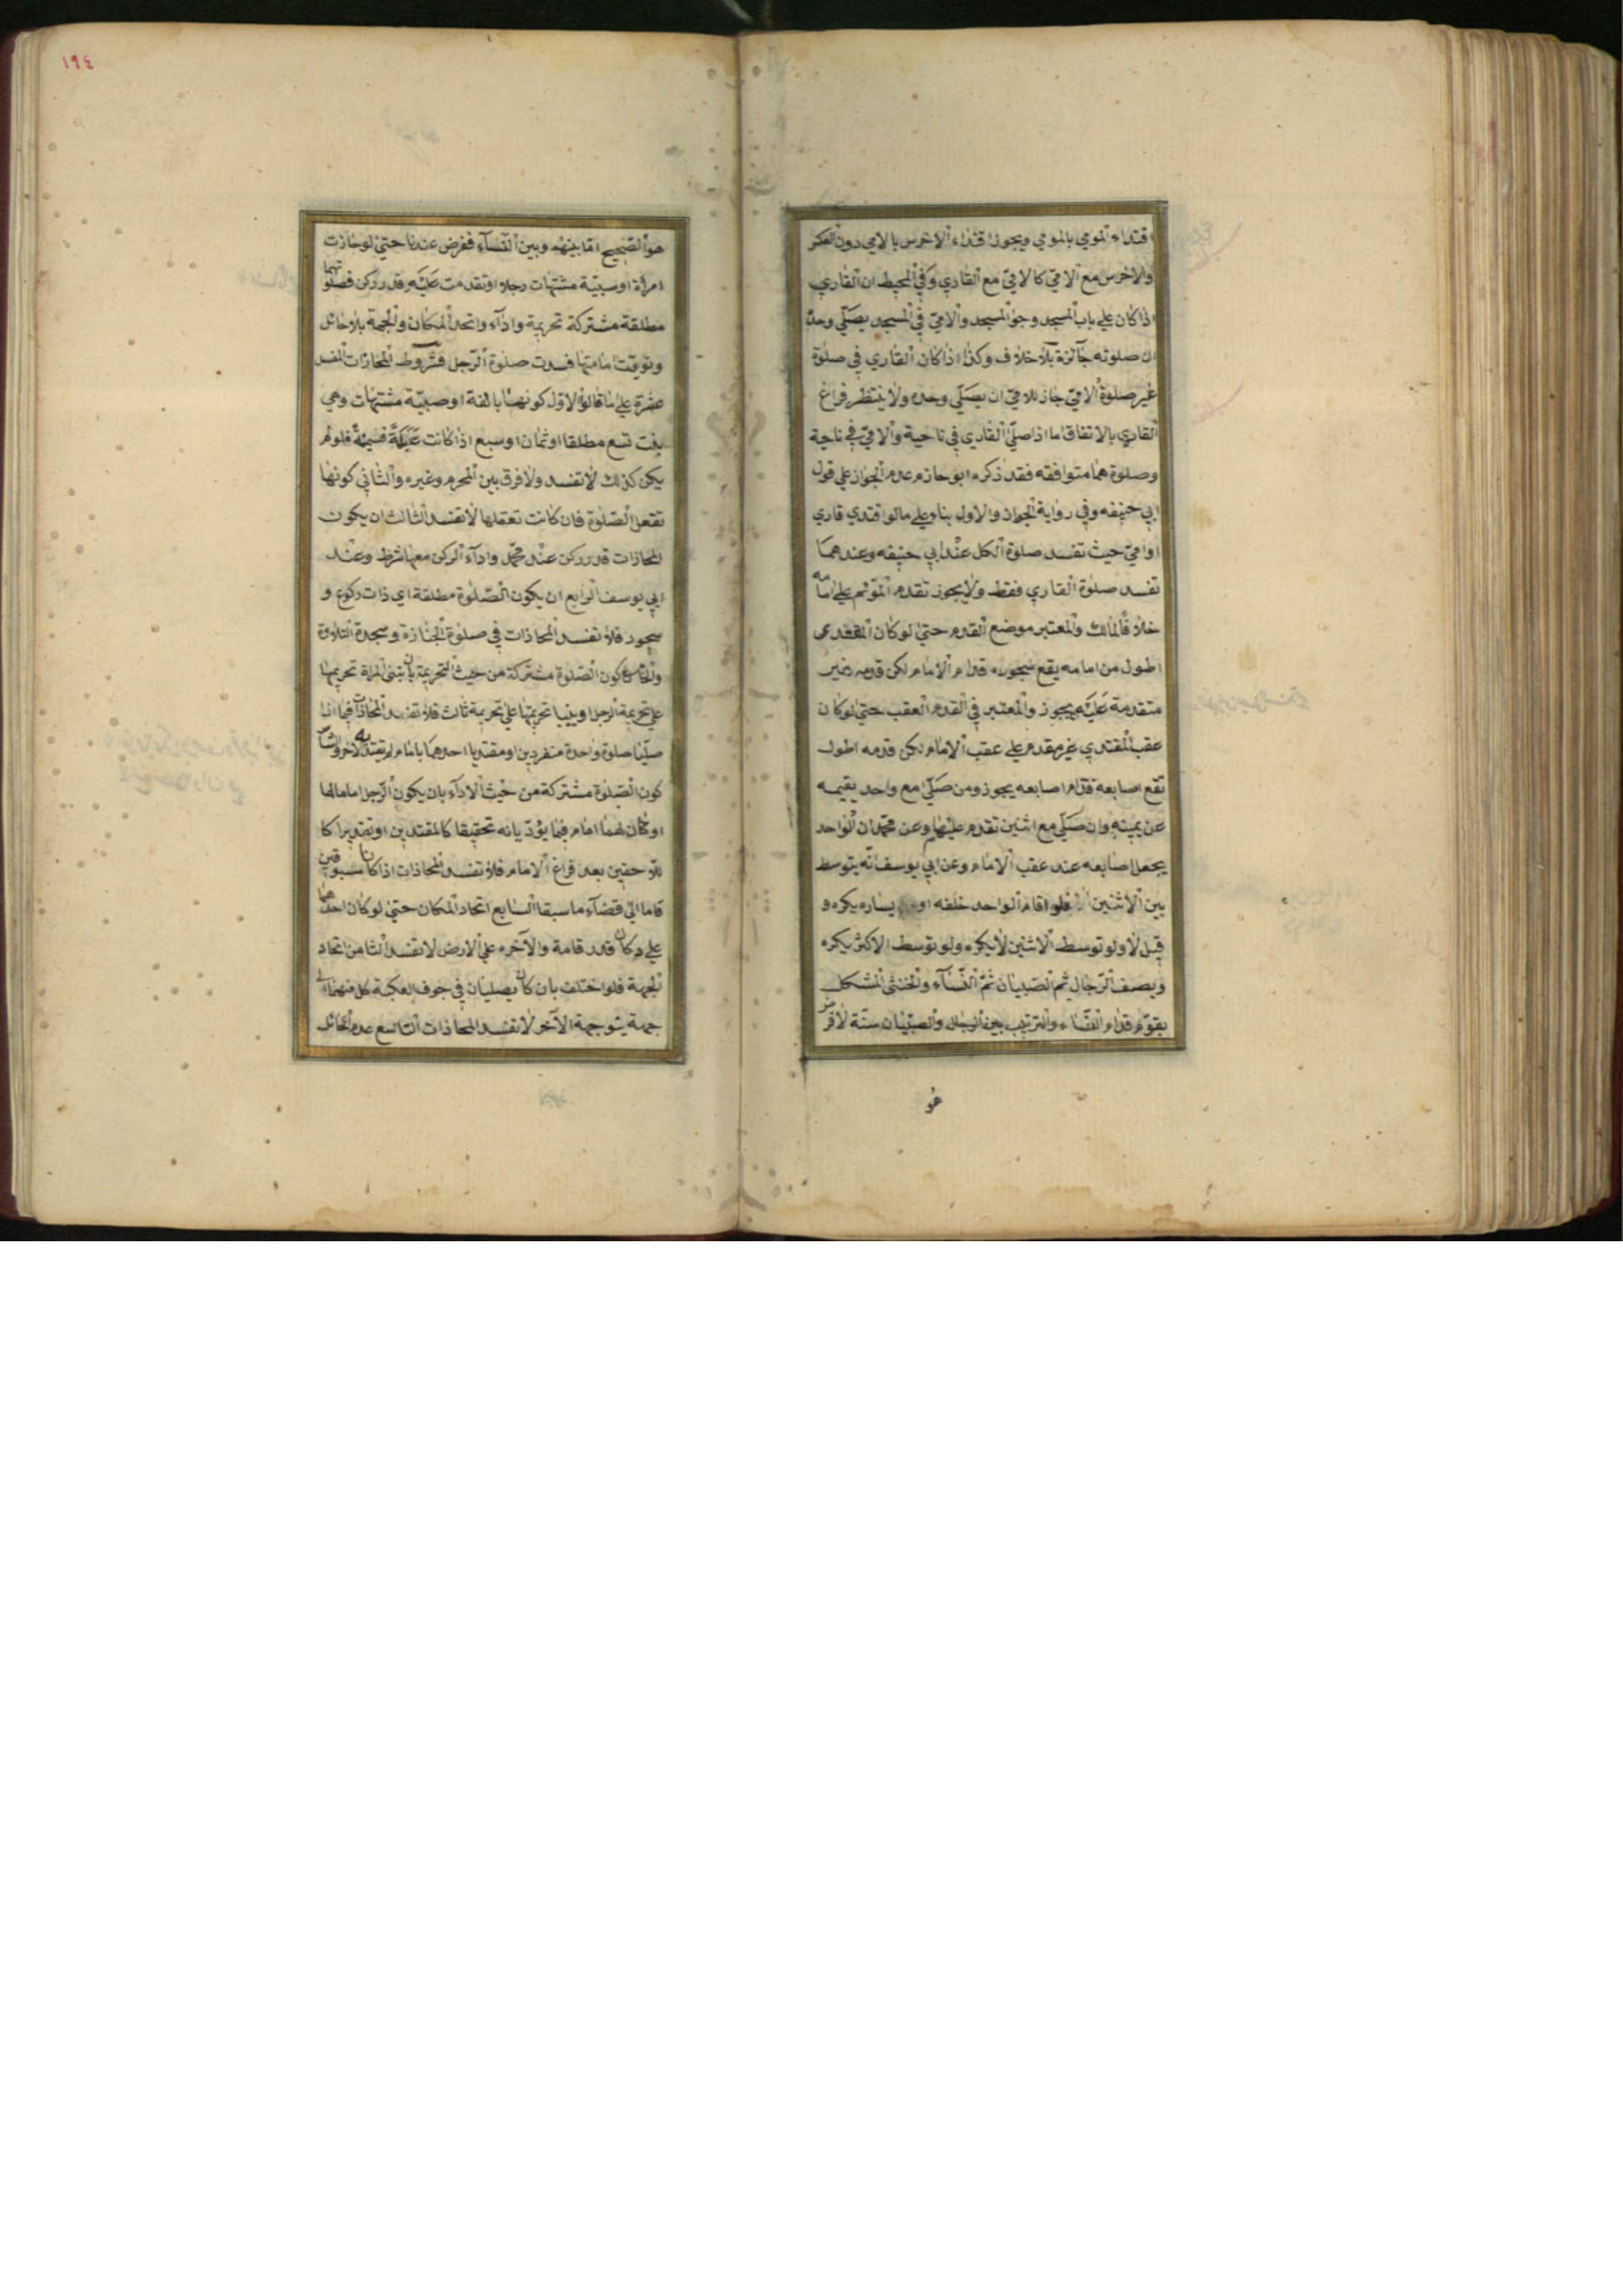 اقتداء المومي بالمومي ويجوز اقتداء الاخرس بالامي دون العكس
والاخرس مع الامّيّ كالامّيّ مع القاري وفي المحيط ان القاري
اذا كان علي باب المسجد وجو المسجد والامّيّ في المسجد يصلّي وحده
ان صلوته جآئزة بلا خلاف وكذا اذا كان القاري في صلوة
غير صلوة الامّيّ جاز للامّيّ ان يصلّي وحده ولا ينتظر فراغ
القاري بالاتفاق اما اذا صلّي القاري في ناحية والامّيّ في ناحية
وصلوة هما متوافقه فقد ذكره ابو حازم عدم الجواز علي قول
ابي حنيفه وفي رواية الجواز والاول بناء علي مالو اقتدي قاري
او امّيّ حيث تفسد صلوة الكل عند ابي حنيفه وعندهما
تفسد صلوة القاري فقط ولا يجوز تقدم المؤتم علي امامه
خلافا لمالك والمعتبر موضع القدم حتي لو كان المقتدي
اطول من امامه يقع سجوده قدام الامام لكن قدمه غير
متقدمة عليه يجوز والمعتبر في القدم العقب حتي لو كان
عقب المقتدي غير مقدم علي عقب الامام لكن قدمه اطول
تقع اصابعه قدام اصابعه يجوز ومن صلّي مع واحد يقيمه
عن يمينه وان صلّي مع اثنين تقدم عليهما وعن محمّد ان الواحد
يجعل اصابعه عند عقب الامام وعن ابي يوسف انّه يتوسط
بين الاثنين فلو اقام الواحد خلفه او يساره يكره و
قيل لا ولو توسط الاثنين لا يكره ولو توسط الاكثر يكره
ويصف الرّجال ثم الصّبيان ثمّ النّسآء والخنثي المشكل
يقوّم قدام النّساء والترتيب بين الرجال والصبّيان سنّة لا فرض
هو
١٩٤
هو الصّحيح امّا بينهم وبين النّسآء ففرض عندنا حتي لو حازت
امراة او صبيّة مشتهات رجلا او تقدمت عليه قدر ركن فصلوتهما
مطلقة مشتركة تحريمة وادآء واتحد المكان والجهة بلا حائل
ونويت امامتها فسدت صلوة الرّجل فشروط المحازات المفسد
عشرة علي ما قالوا الاوّل كونها بالغة او صبيّة مشتهات وهي
بنت تسع مطلقا او ثمان او سبع اذا كانت عَبَلَةً ضخمةً فلو لم
يكن كذلك لا تفسد ولا فرق بين المحرم وغيره والثاني كونها
تفعل الصّلوة فان كانت تعقلها لا تفسد الثالث ان يكون
المحاذات قدر ركن عند محمّد وادآء الركن معها شرط وعند
ابي يوسف الرابع ان يكون الصّلوة مطلقة اي ذات ركوع و
سجود فلا تفسد المحاذات في صلوة الجنازة وسجدة التلاوة
والخامس كون الصّلوة مشتركة من حيث التحريمة بان تبني المراة تحريمها
علي تحريمة الرجل او يبنيا تحريمتها علي تحريمة ثالث فلا تفسد المحاذات فيما اذا
صلّيا صلوة واحدة منفردين او مقتديا احدهما بامام لم يقتد به الاخر والسادس
كون الصّلوة مشتركة من حيث الادآء بان يكون الرّجل اماما لها
او كان لهما امام فيما يؤدّيانه تحقيقا كالمقتدين او تقديرا كا
للاحقين بعد فراغ الامام فلا تفسد المحاذات اذا كانا مسبوقين
قاما الي قضآء ما سبقا السابع اتحاد المكان حتي لو كان احدهما
علي دكان قدر قامة والآخره علي الارض لا تفسد الثامن اتحاد
الجهة فلو اختلف بان كان يصليان في جوف الكعبة كل منهما الي
جهة يتوجهة الآخر لا تفسد المحاذات التاسع عدم الحائل